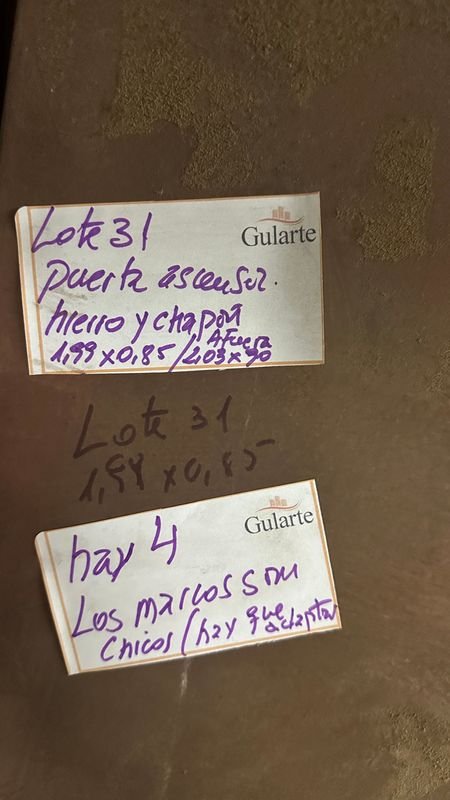 Lote 31
Gularte
puerta ascensor.
hierro y chapón
Afuera
1,99 x 0,85 / 2,03 x 90
Lote 31
1,99 x 0,85
Gularte
hay 4
Los marcos son
chicos / hay que adaptar